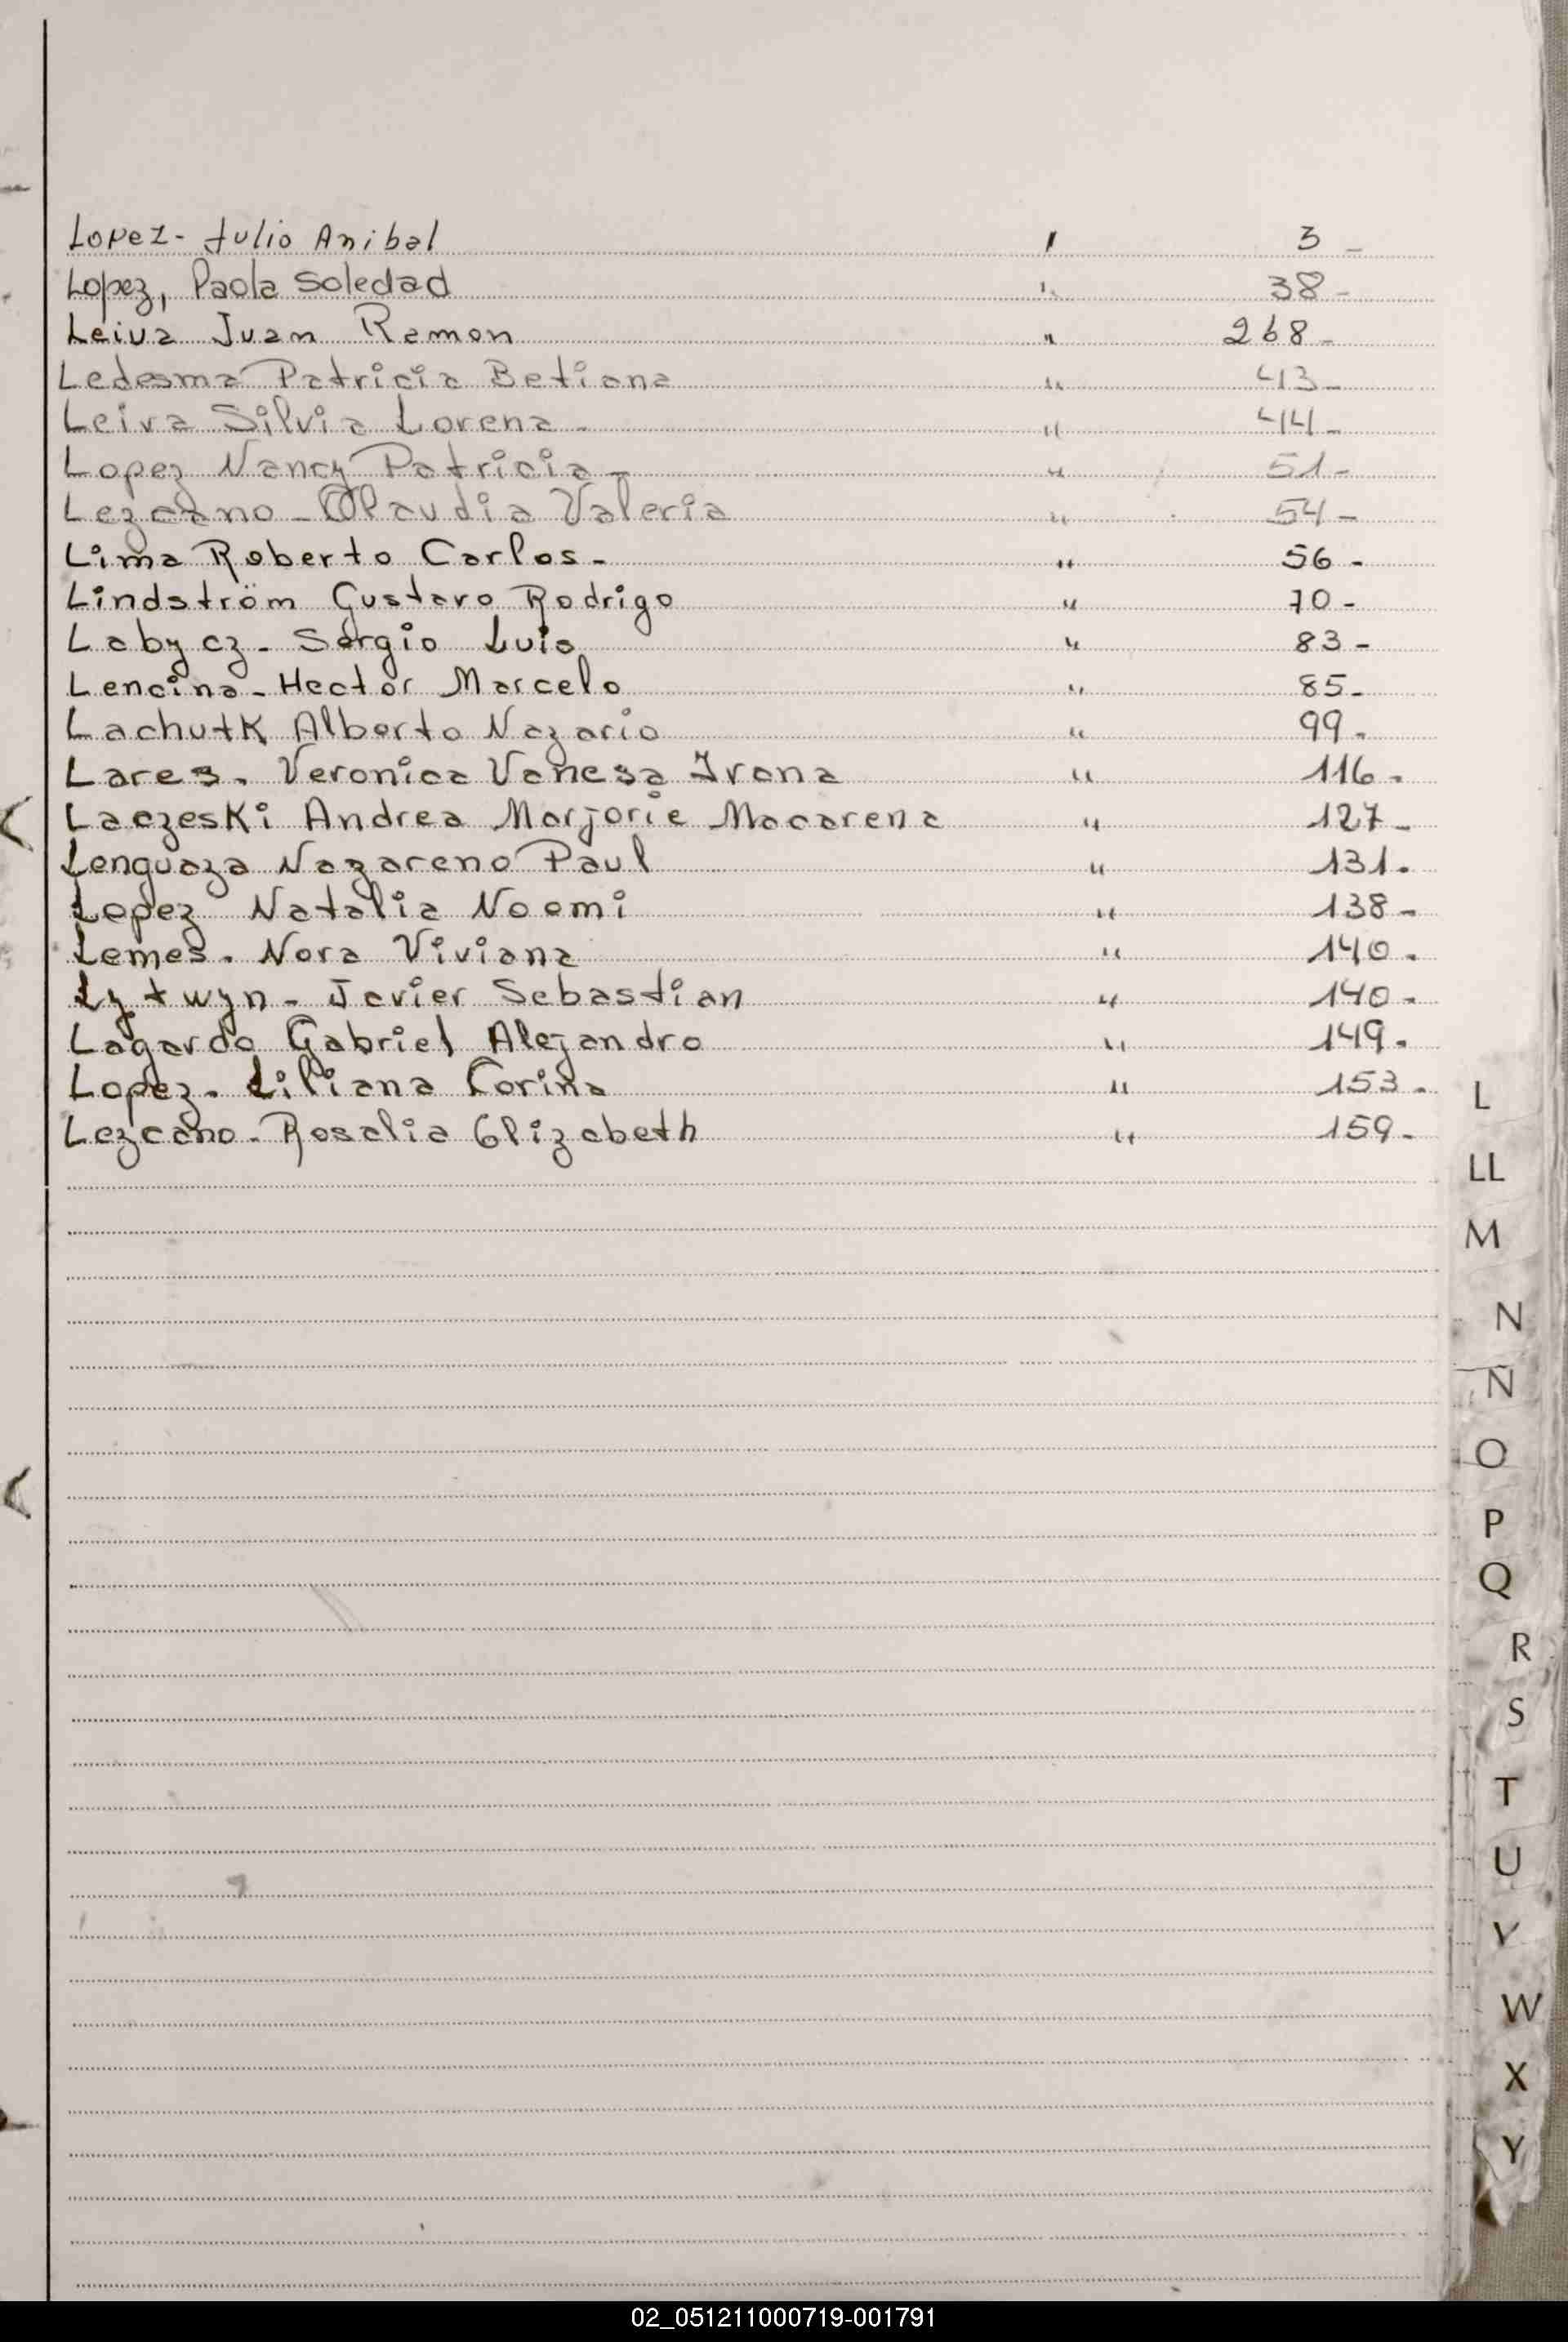 Lopez- Julio Anibal " 3 -
Lopez, Paola Soledad " 38 -
Leiva Juan Ramon " 268 -
Ledesma Patricia Betiana " 43 -
Leiva Silvia Lorena - " 44 -
Lopez Nancy Patricia - " 51 -
Lezcano - Claudia Valeria " 54 -
Lima Roberto Carlos - " 56 -
Lindström Gustavo Rodrigo " 70 -
Labycz - Sergio Luis " 83 -
Lencina - Hector Marcelo " 85 -
Lachutk Alberto Nazario " 99 -
Lares. Veronica Vanesa Ivana " 116 -
Laczeski Andrea Marjorie Macarena " 127 -
Lenguaza Nazareno Paul " 131.
Lopez Natalia Noemi " 138 -
Lemes. Nora Viviana " 140.
Lytwyn - Javier Sebastian " 140 -
Lagardo Gabriel Alejandro " 149.
Lopez. Liliana Corina " 153.
Lezcano - Rosalia Elizabeth " 159 -
L
LL
M
N
Ñ
O
P
Q
R
S
T
U
V
W
X
Y
02_051211000719-001791